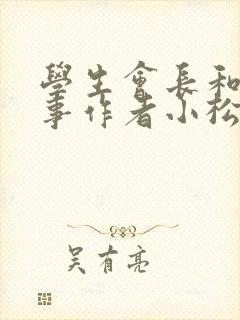 學生會長和
事作者小松
吴有亮